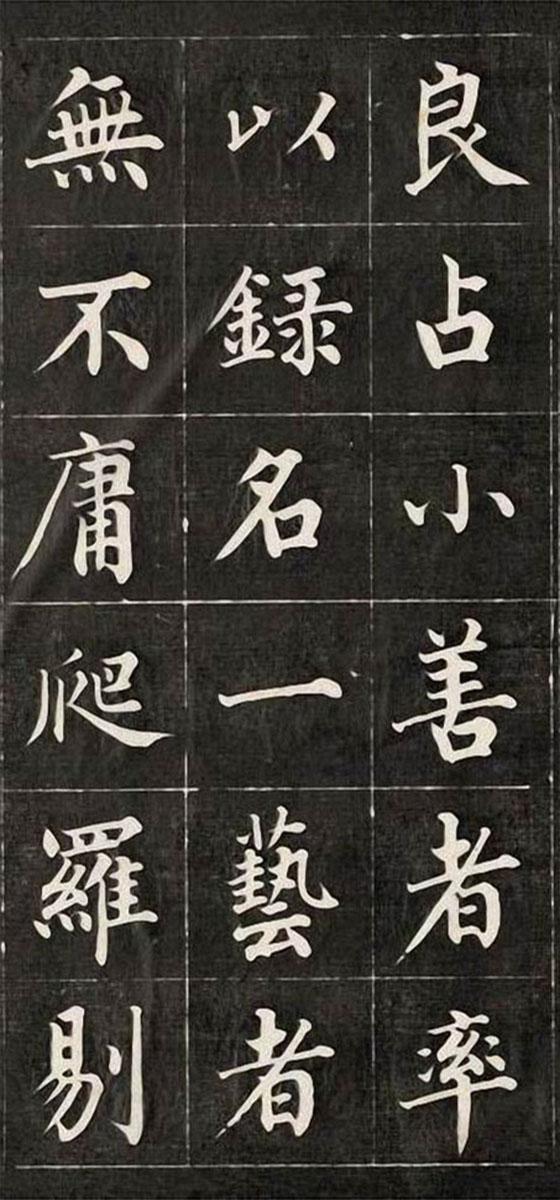 良占小善者率
以錄名一藝者
無不庸爬羅剔